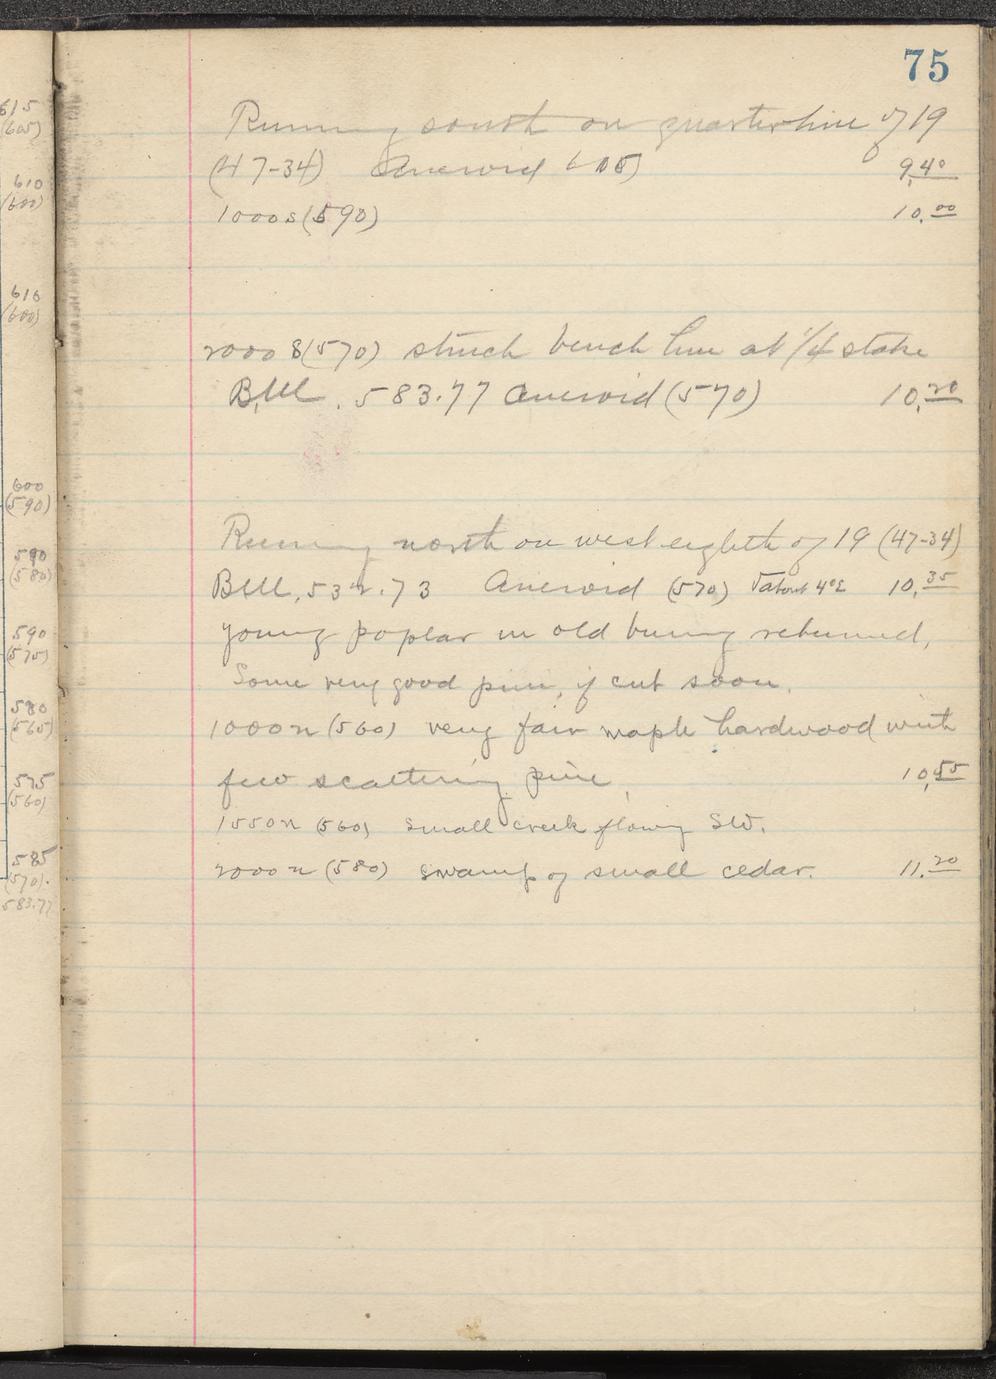 615
(605)
610
(600)
610
(600)
600
(590)
590
(580)
590
(575)
580
(565)
575
(560)
585
(570).
583.77
75
Running south on quarter line of 19
(47-34) Aneroid 605) 9.40
1000 s (590) 10.00
2000 s (570) struck bench line at 1/4 stake
B.M. 583.77 Aneroid (570) 10.20
Running north on west eighth of 19 (47-34)
B.M. 532.73 Aneroid (570) about 4°E 10.35
Young poplar in old burning reburned,
Some very good pine, if cut soon.
1000 n (560) very fair maple hardwood with
few scattering pine, 10.55
1550 n (560) small creek flowing SW.
2000 n (580) swamp of small cedar. 11.20